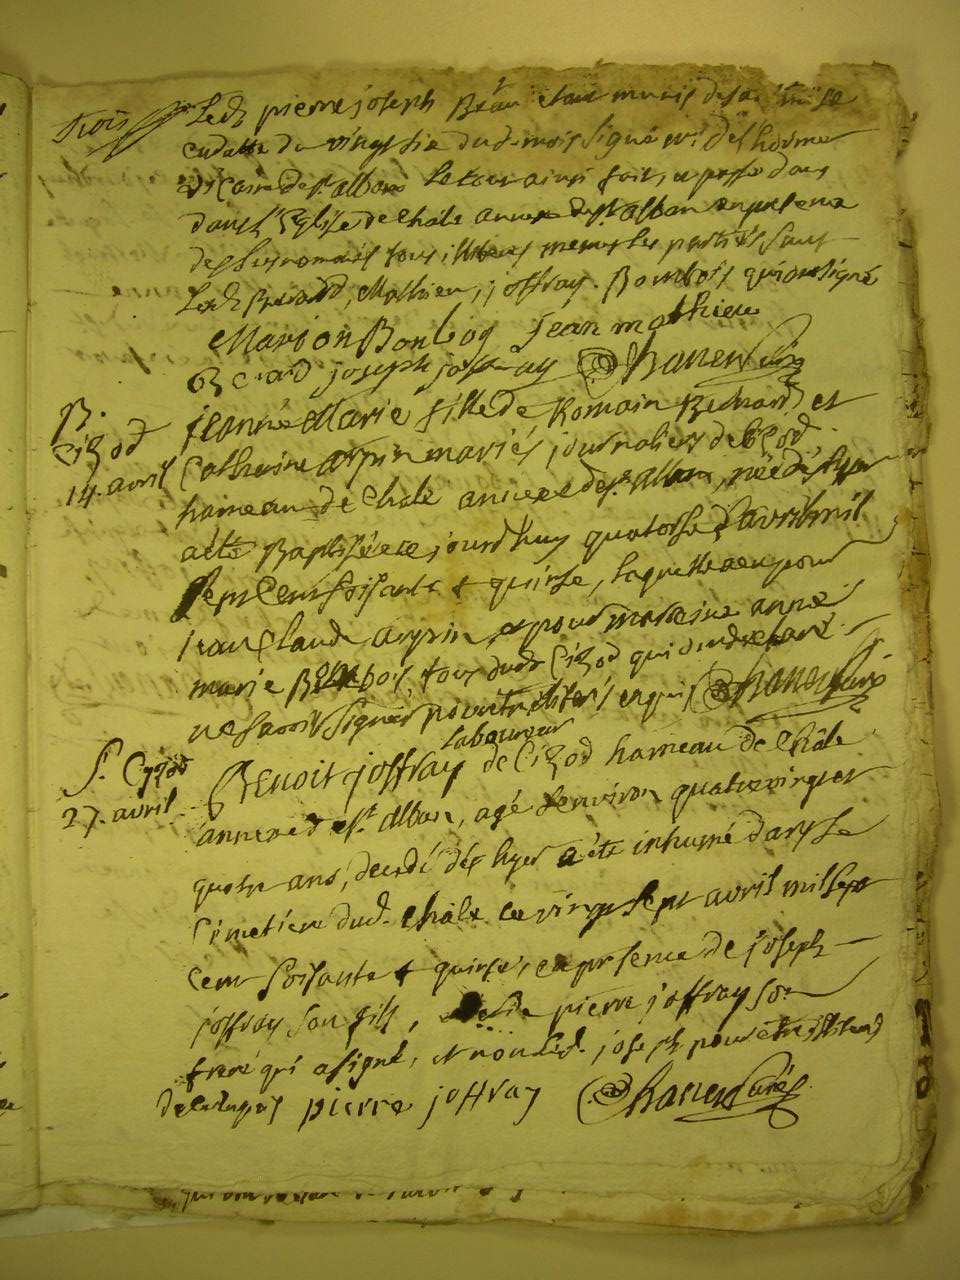 Trois
Led. pierre joseph Brun etant muni de sa
en datte du vingt six dud. mois signé
vicaire de st. alban le tout ainsi fait et passé dans
dans l'Eglise de Chale annexe de st. alban en presence
des susnommés tous illiteres memes les parties sauf
Led. Berard, Mathieu, joffray. Bonbois qui ont signé
Marion Bonboy jean mathieu
Berard joseph joffray Chanen Curé
B.
Cizod
14. avril
jeanne Marie fille de Romain Bernard et
Catherine arpin mariés journaliers de Cizod
hameau de Chale annexe de st. alban, née d'hyer
a été Baptisée ce jourd'huy quatorse d'avril mil
sept Cent soisante & quinse, laquelle a eu pour
jean Claude arpin, et pour marreine anne
marie Bonbois, tous dud. Cizod qui ont declaré
ne savoir signer pour etre illiterés enquis Chanen Curé
S. Cyzod
27. avril
Laboureur
BENOIT joffray de Cizod hameau de Châle
annexe de st. alban, agé d'environ quatrevingt et
quatre ans, decedé dès hyer a été inhumé dans le
Cimetiere dud. Châle ce vingt sept avril mil sept
cent soisante & quinse, en presence de joseph
joffray son fils, et de pierre joffray son
frere qui a signé, et non led. joseph pour etre illiteré
de ce enquis pierre joffray Chanen Curé